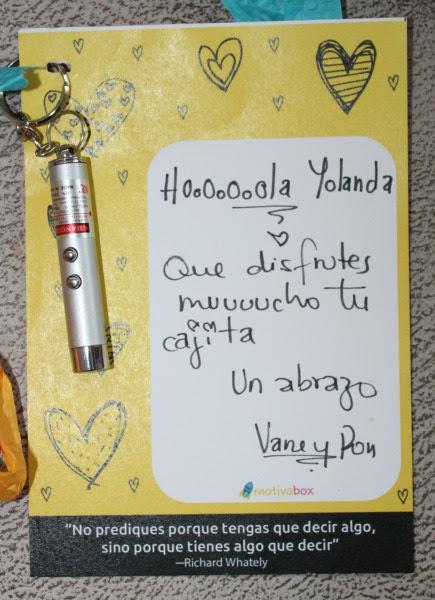 Hooooola Yolanda
Que disfrutes
muuuucho tu
cajita
Un abrazo
Vane y Pon
motivabox
"No prediques porque tengas que decir algo,
sino porque tienes algo que decir"
—Richard Whately